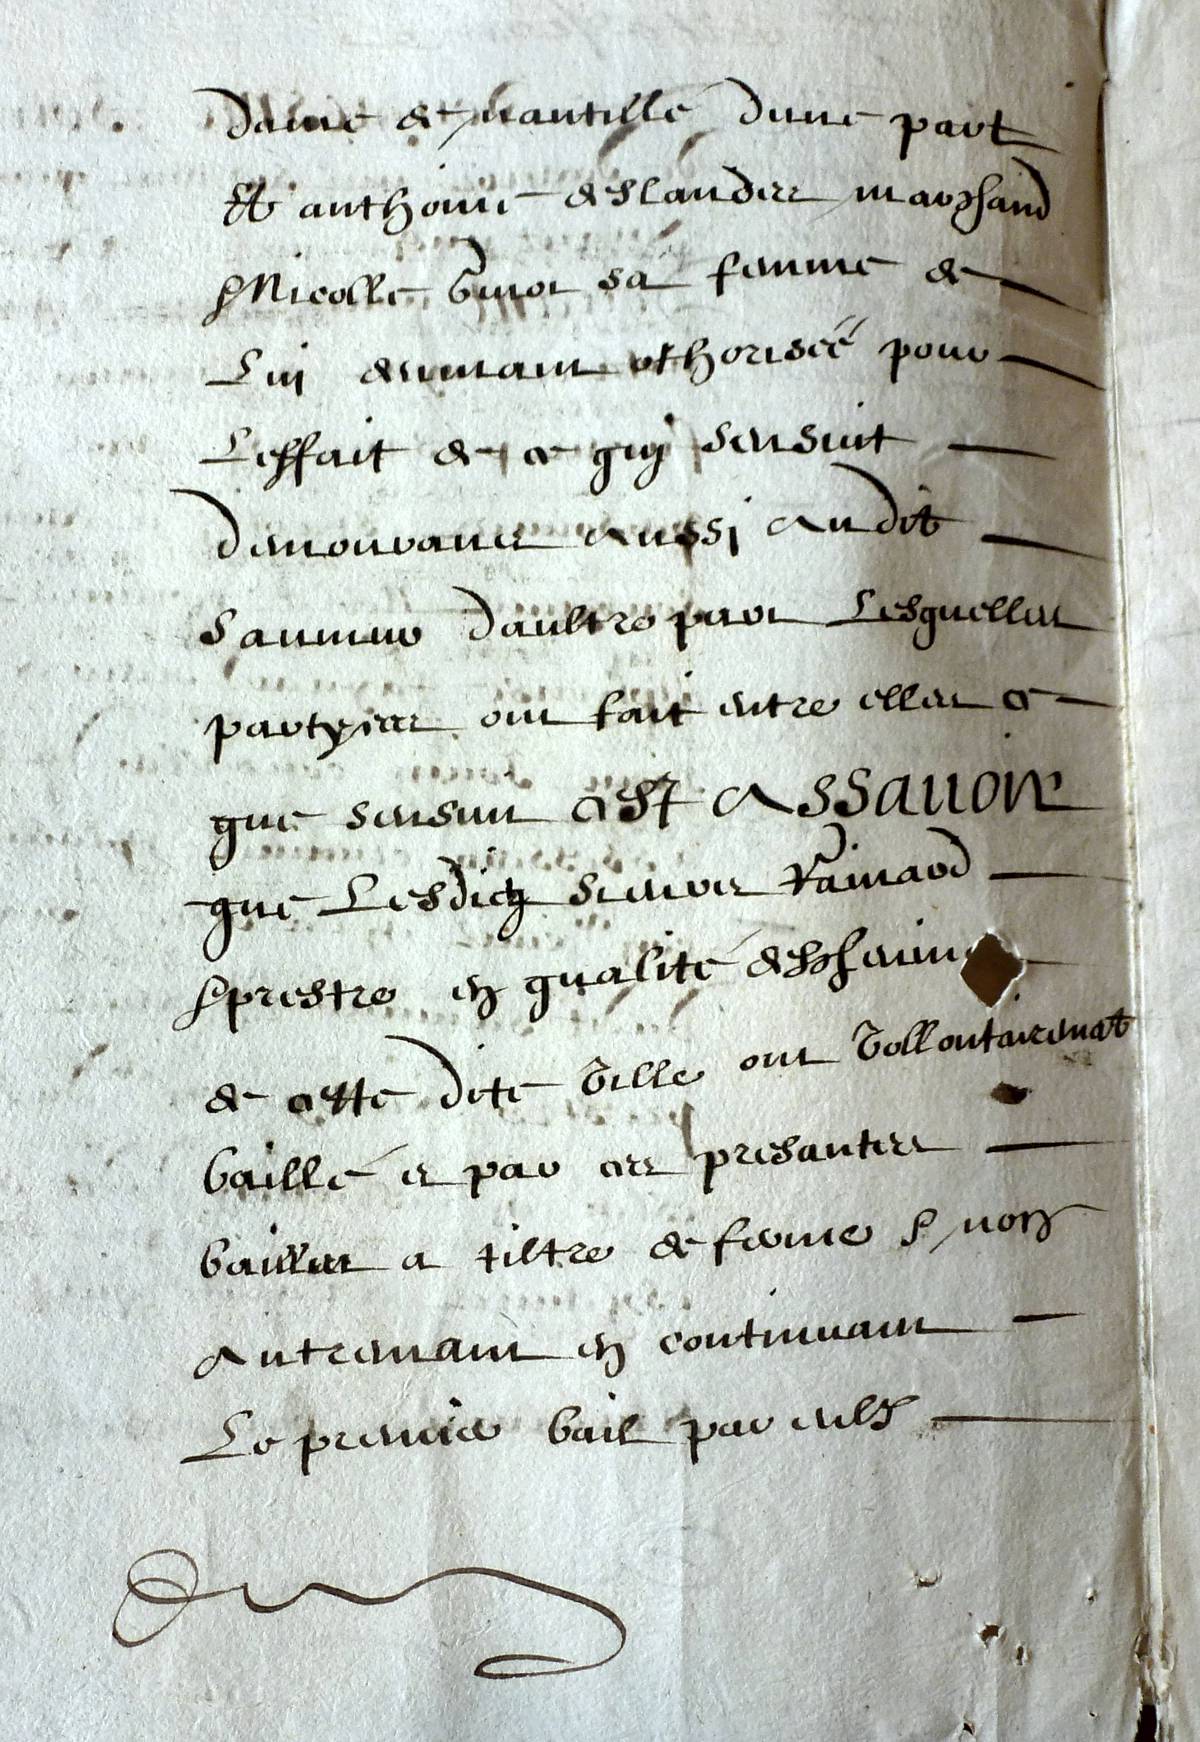 dame de nantille dune part
Et anthoine deslandes marchand
& Nicolle sa femme de
Luy deumant othorisée pour
Leffait de ce quy sensuit
demourans aussi audit
saumur daultre part Lesquelles
partyes ont fait entre elles ce
que sensuit cest Assauoir
que Lesdictz sieurs Rainard
& prestre en qualité desche
de cette dite ville ont vollontairemat
baillé et par ces presantes
baillet a tiltre de ferme & non
Autremant en continuant
Le premier bail par eulx